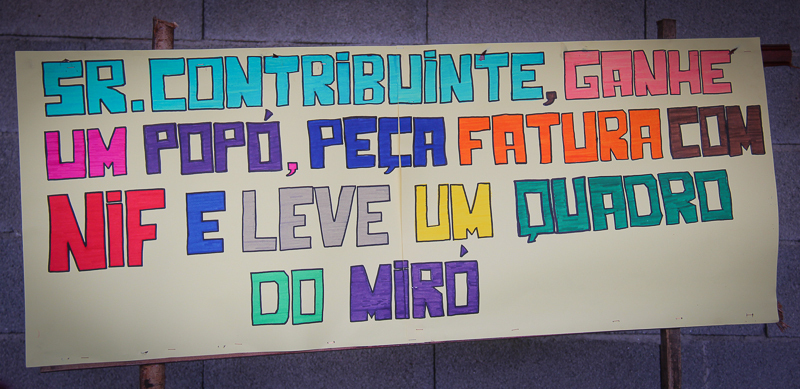 SR. CONTRiBUiNTE, GANHE
UM POPÓ, PEÇA FATURA COM
NiF E LEVE UM QUADRO
DO MiRÓ